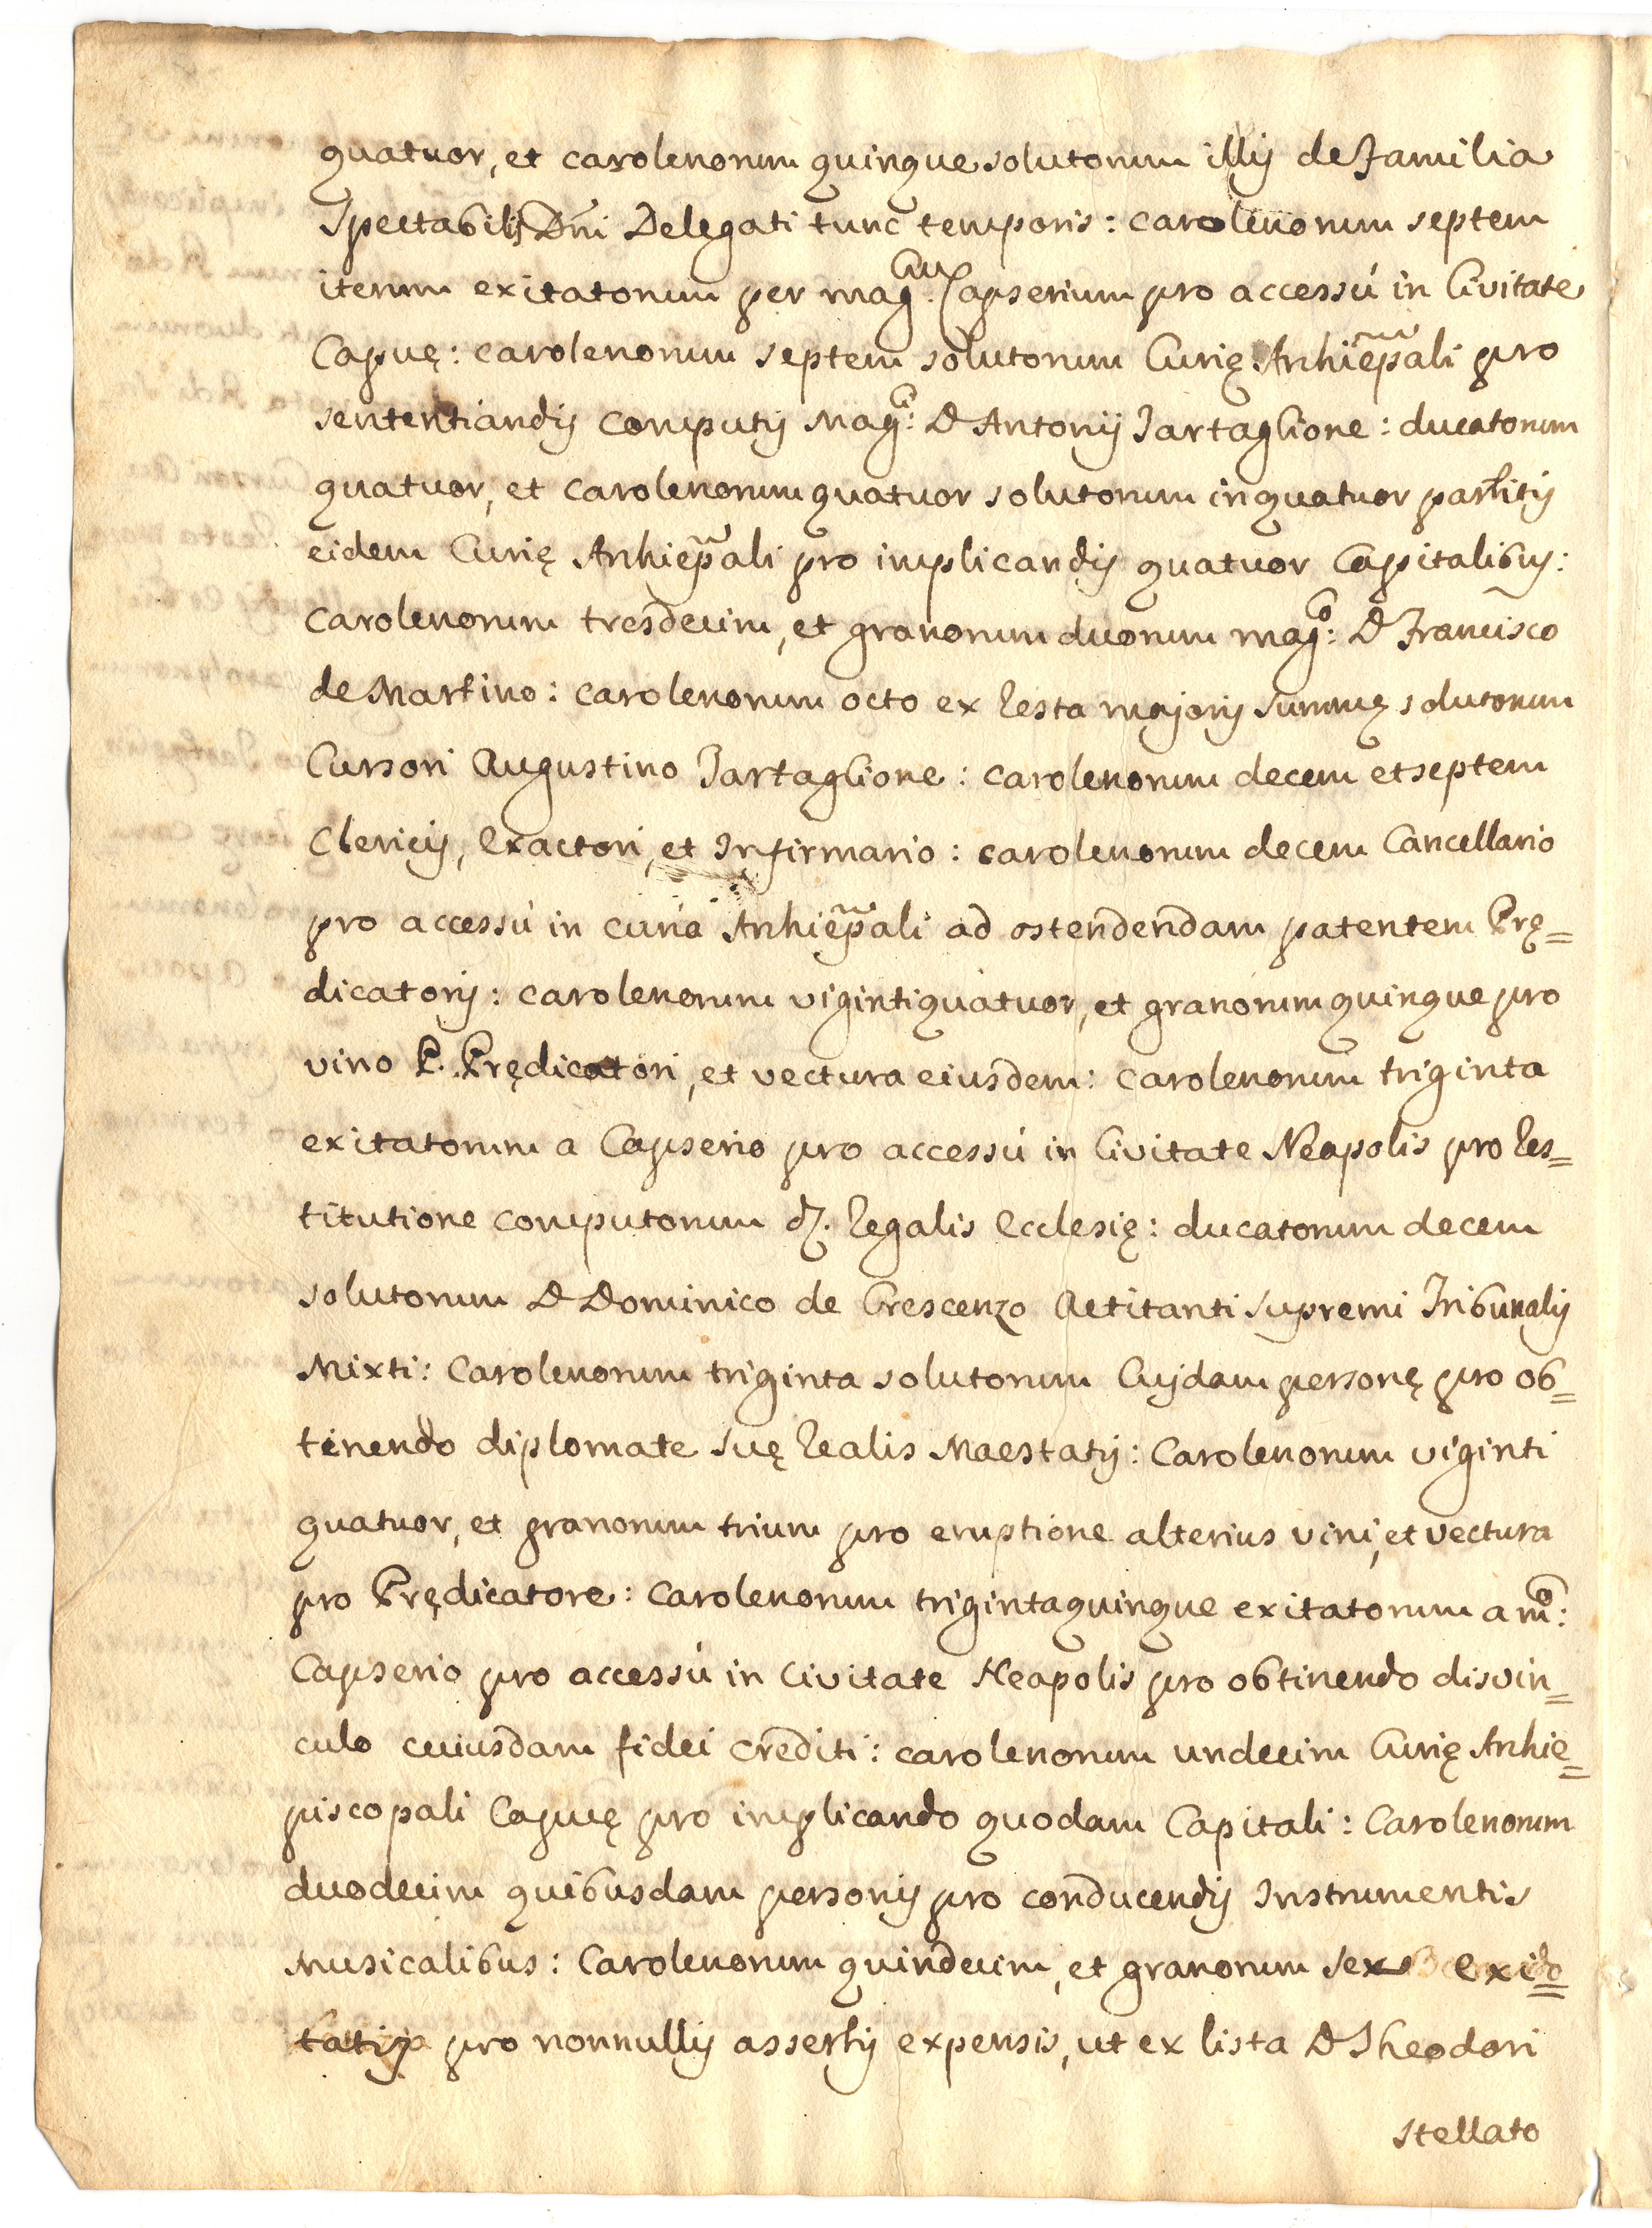 quatuor, et carolenorum quinque solutorum illis de Familia
Spectabilis Dñi Delegati tunc temporis: carolenorum septem
iterum exitatorum per mag.cum Capserium pro accessù in Civitate
Capuę: carolenorum septem solutorum Curię Arhiep̃ali pro
sententiandis computis Mag.ci: D Antonij Tartaglione: ducatorum
quatuor, et carolenorum quatuor solutorum in quatuor partitis
eidem Curię Arhiep̃ali pro implicandis quatuor Capitalibus:
Carolenorum tresdecim, et granorum duorum mag.co: D Francisco
de Martino: carolenorum octo ex Resta majoris summę solutorum
Cursori Augustino Tartaglione: carolenorum decem et septem
Clericis, Exactori, et Infirmario: carolenorum decem Cancellario
pro accessù in curia Arhiep̃ali ad ostendendam patentem Prę=
dicatoris: carolenorum vigintiquatuor, et granorum quinque pro
vino P. Prędicatori, et vectura eiusdem: carolenorum triginta
exitatorum a Capserio pro accessù in Civitate Neapolis pro Res=
titutione computorum d. Regalis Ecclesię: ducatorum decem
solutorum D Dominico de Crescenzo Actitanti supremi Tribunalis
Mixti: Carolenorum triginta solutorum Cujdam personę pro ob=
tinendo diplomate suę Realis Maestatis: Carolenorum viginti
quatuor, et granorum trium pro eruptione alterius vini, et vectura
pro Prędicatore: Carolenorum trigintaquinque exitatorum a m.co:
Capserio pro accessù in Civitate Neapolis pro obtinendo disvin=
culo cuiusdam fidei crediti: carolenorum undecim Curię Arhie=
piscopali Capuę pro implicando quodam Capitali: Carolenorum
duodecim quibusdam personis pro conducendis Instrumentis
Musicalibus: Carolenorum quindecim, et granorum sex exi=
tatis pro nonnullis assertis expensis, ut ex lista D Theodori
Stellato